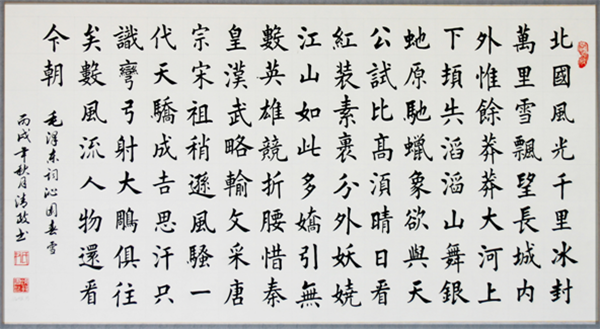 北國風光千里冰封
萬里雪飄望長城內
外惟餘莽莽大河上
下頓失滔滔山舞銀
虵原馳蠟象欲與天
公試比高須晴日看
紅裝素裹分外妖嬈
江山如此多嬌引無
數英雄競折腰惜秦
皇漢武略輸文采唐
宗宋祖稍遜風騷一
代天驕成吉思汗只
識彎弓射大鵰俱往
矣數風流人物還看
今朝
毛澤东词沁园春雪
丙戌年秋月政书